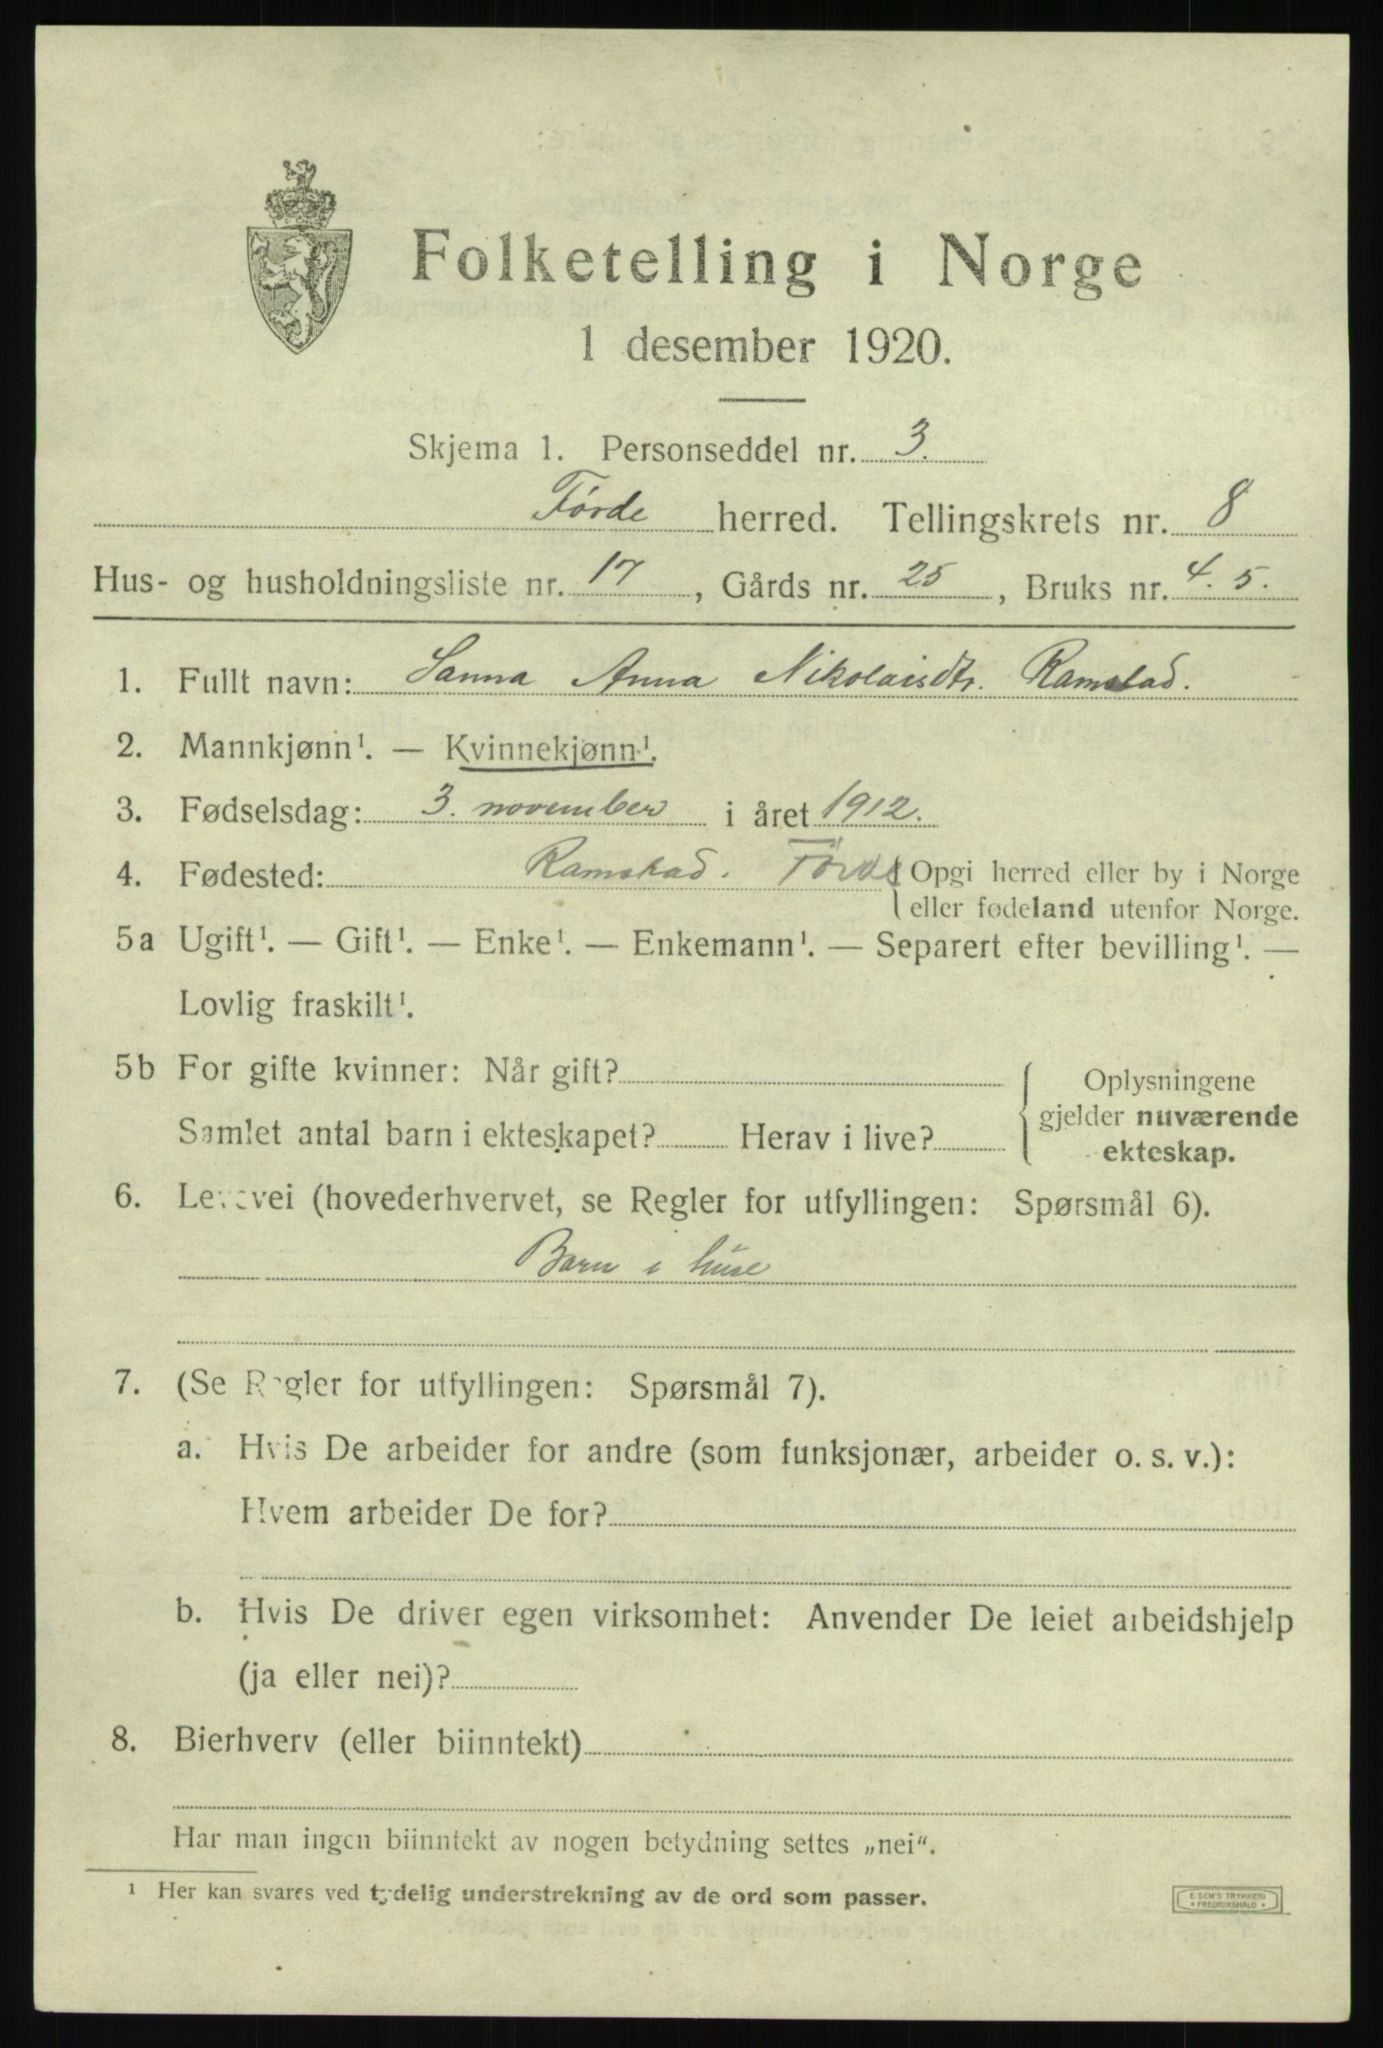 Folketelling i Norge
1 desember 1920.
Skjema 1. Personseddel nr. 3.
Førde herred. Tellingskrets nr. 8
Hus- og husholdningsliste nr. 17, Gårds nr. 25, Bruks nr. 4. 5.
1. Fullt navn: Sanna Anna Nikolaisdtr. Ramstad.
2. Mannkjønn¹. — Kvinnekjønn¹.
3. Fødselsdag: 3. november i året 1912.
4. Fødested: Ramstad. Förde { Opgi herred eller by i Norge
eller fødeland utenfor Norge.
5a Ugift¹. — Gift¹. — Enke¹. — Enkemann¹. — Separert efter bevilling¹. —
Lovlig fraskilt¹.
5b For gifte kvinner: Når gift?
Samlet antal barn i ekteskapet? Herav i live?
{ Oplysningene
gjelder nuværende
ekteskap.
6. Levevei (hovederhvervet, se Regler for utfyllingen: Spørsmål 6).
Barn i huse
7. (Se Regler for utfyllingen: Spørsmål 7).
a. Hvis De arbeider for andre (som funksjonær, arbeider o. s. v.):
Hvem arbeider De for?
b. Hvis De driver egen virksomhet: Anvender De leiet arbeidshjelp
(ja eller nei)?
8. Bierhverv (eller biinntekt)
Har man ingen biinntekt av nogen betydning settes „nei“.
¹ Her kan svares ved tydelig understrekning av de ord som passer.
E SEM'S TRYKKERI
• FREDRIKSHALD •